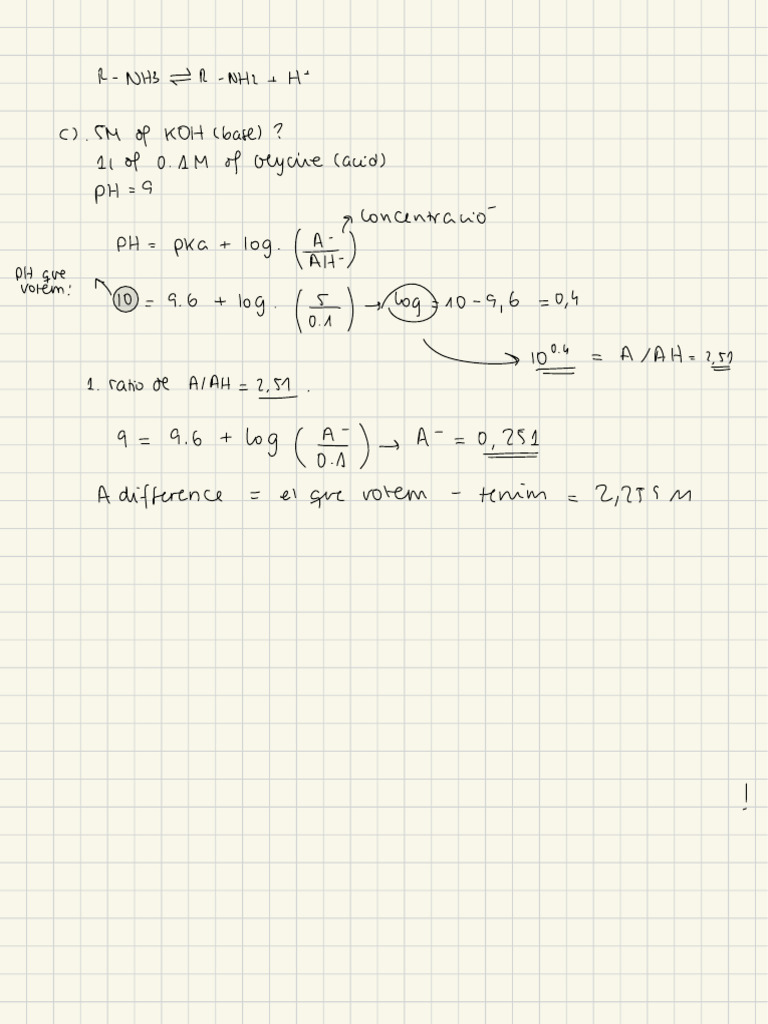 R - NH3 ⇌ R - NH2 + H⁺
c). 5M of KOH (base) ?
1l of 0.1M of Glycine (acid)
PH = 9
Concentració
PH = pKa + log. (A⁻/AH⁻)
PH que
volem:
10 = 9.6 + log. (5/0.1) → log = 10 - 9,6 = 0,4
10^0.4 = A/AH = 2,51
1. ratio de A/AH = 2,51.
9 = 9.6 + log (A⁻/0.1) → A⁻ = 0,251
A difference = el que volem - tenim = 2,259 M
!